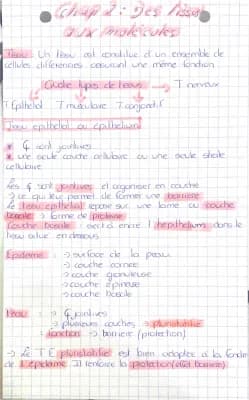 Chap 2 : Des tissus
aux molécules
Tissu : Un tissu est constitué d'un ensemble de
cellules différentes assurant une même fonction.
Quatre types de tissus → T nerveux
T épithélial T musculaire T conjonctif
Tissu épithélial ou épithélium
* ₵ sont jointives
* une seule couche cellulaire ou une seule strate
cellulaire
Les ₵ sont jointives et organiser en couche
⊃ ce qui leur permet de former une barrière
Le tissu épithélial repose sur une lame ou couche
basale → forme de protéine
Couche basale : sert à ancré l'hépithélium dans le
tissu situé en dessous
Epiderme : → surface de la peau
→ couche cornée
→ couche granuleuse
→ couche épineuse
→ couche basale
Peau : → ₵ jointives
→ plusieurs couches → pluristratifié
: fonction → barrière (protection)
→ Le T E pluristratifié est bien adapté à la fonction
de l'épiderme. Il renforce la protection (effet barrière)